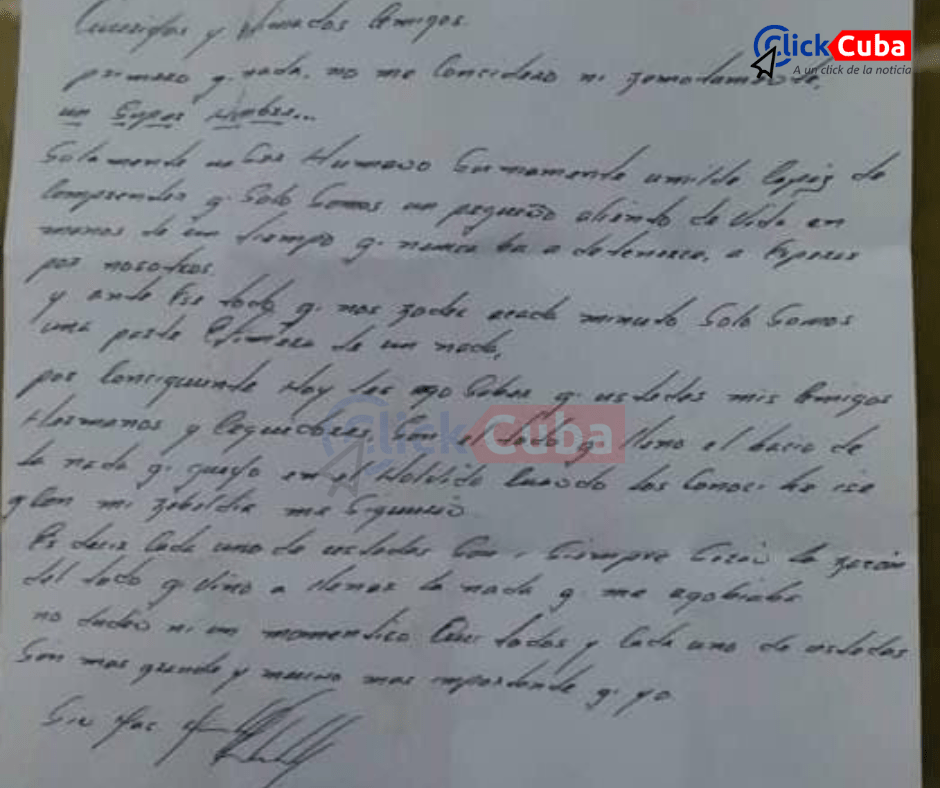 Click Cuba
A un click de la noticia
Queridos y Amados Amigos.
primero q. nada, no me Concidero ni remotamente,
un Super Hombre...
Solamente un Ser Humano Sumamente umilde Capaz de
Comprender q. Solo Somos un pequeño aliendo de vida en
menos de un tiempo q. nunca ba a detenerse, a Esperar
por nosotros.
y ante Ese todo q. nos rodea cada minuto Solo Somos
una parte Efimera de un nada,
por Consiguiente Hoy les ago Saber q. ustedes mis Amigos
Hermanos y Seguidores, Son el todo q. lleno el bacio de
la nada q. quedo en el Holvido Cuando los Conoci he ise
q Con mi rebeldia me Siguieran
Es decir Cada uno de ustedes Son y Siempre Serán la razón
del todo q Vino a llenar la nada q. me agobiaba
no duden ni un momentico Que todos y Cada uno de ustedes
Son mas grande y mucho mas importante q. yo
Sin mas
Click Cuba